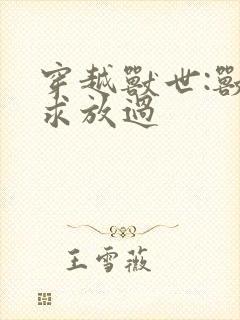 穿越獸世:獸
求放過
王雪薇